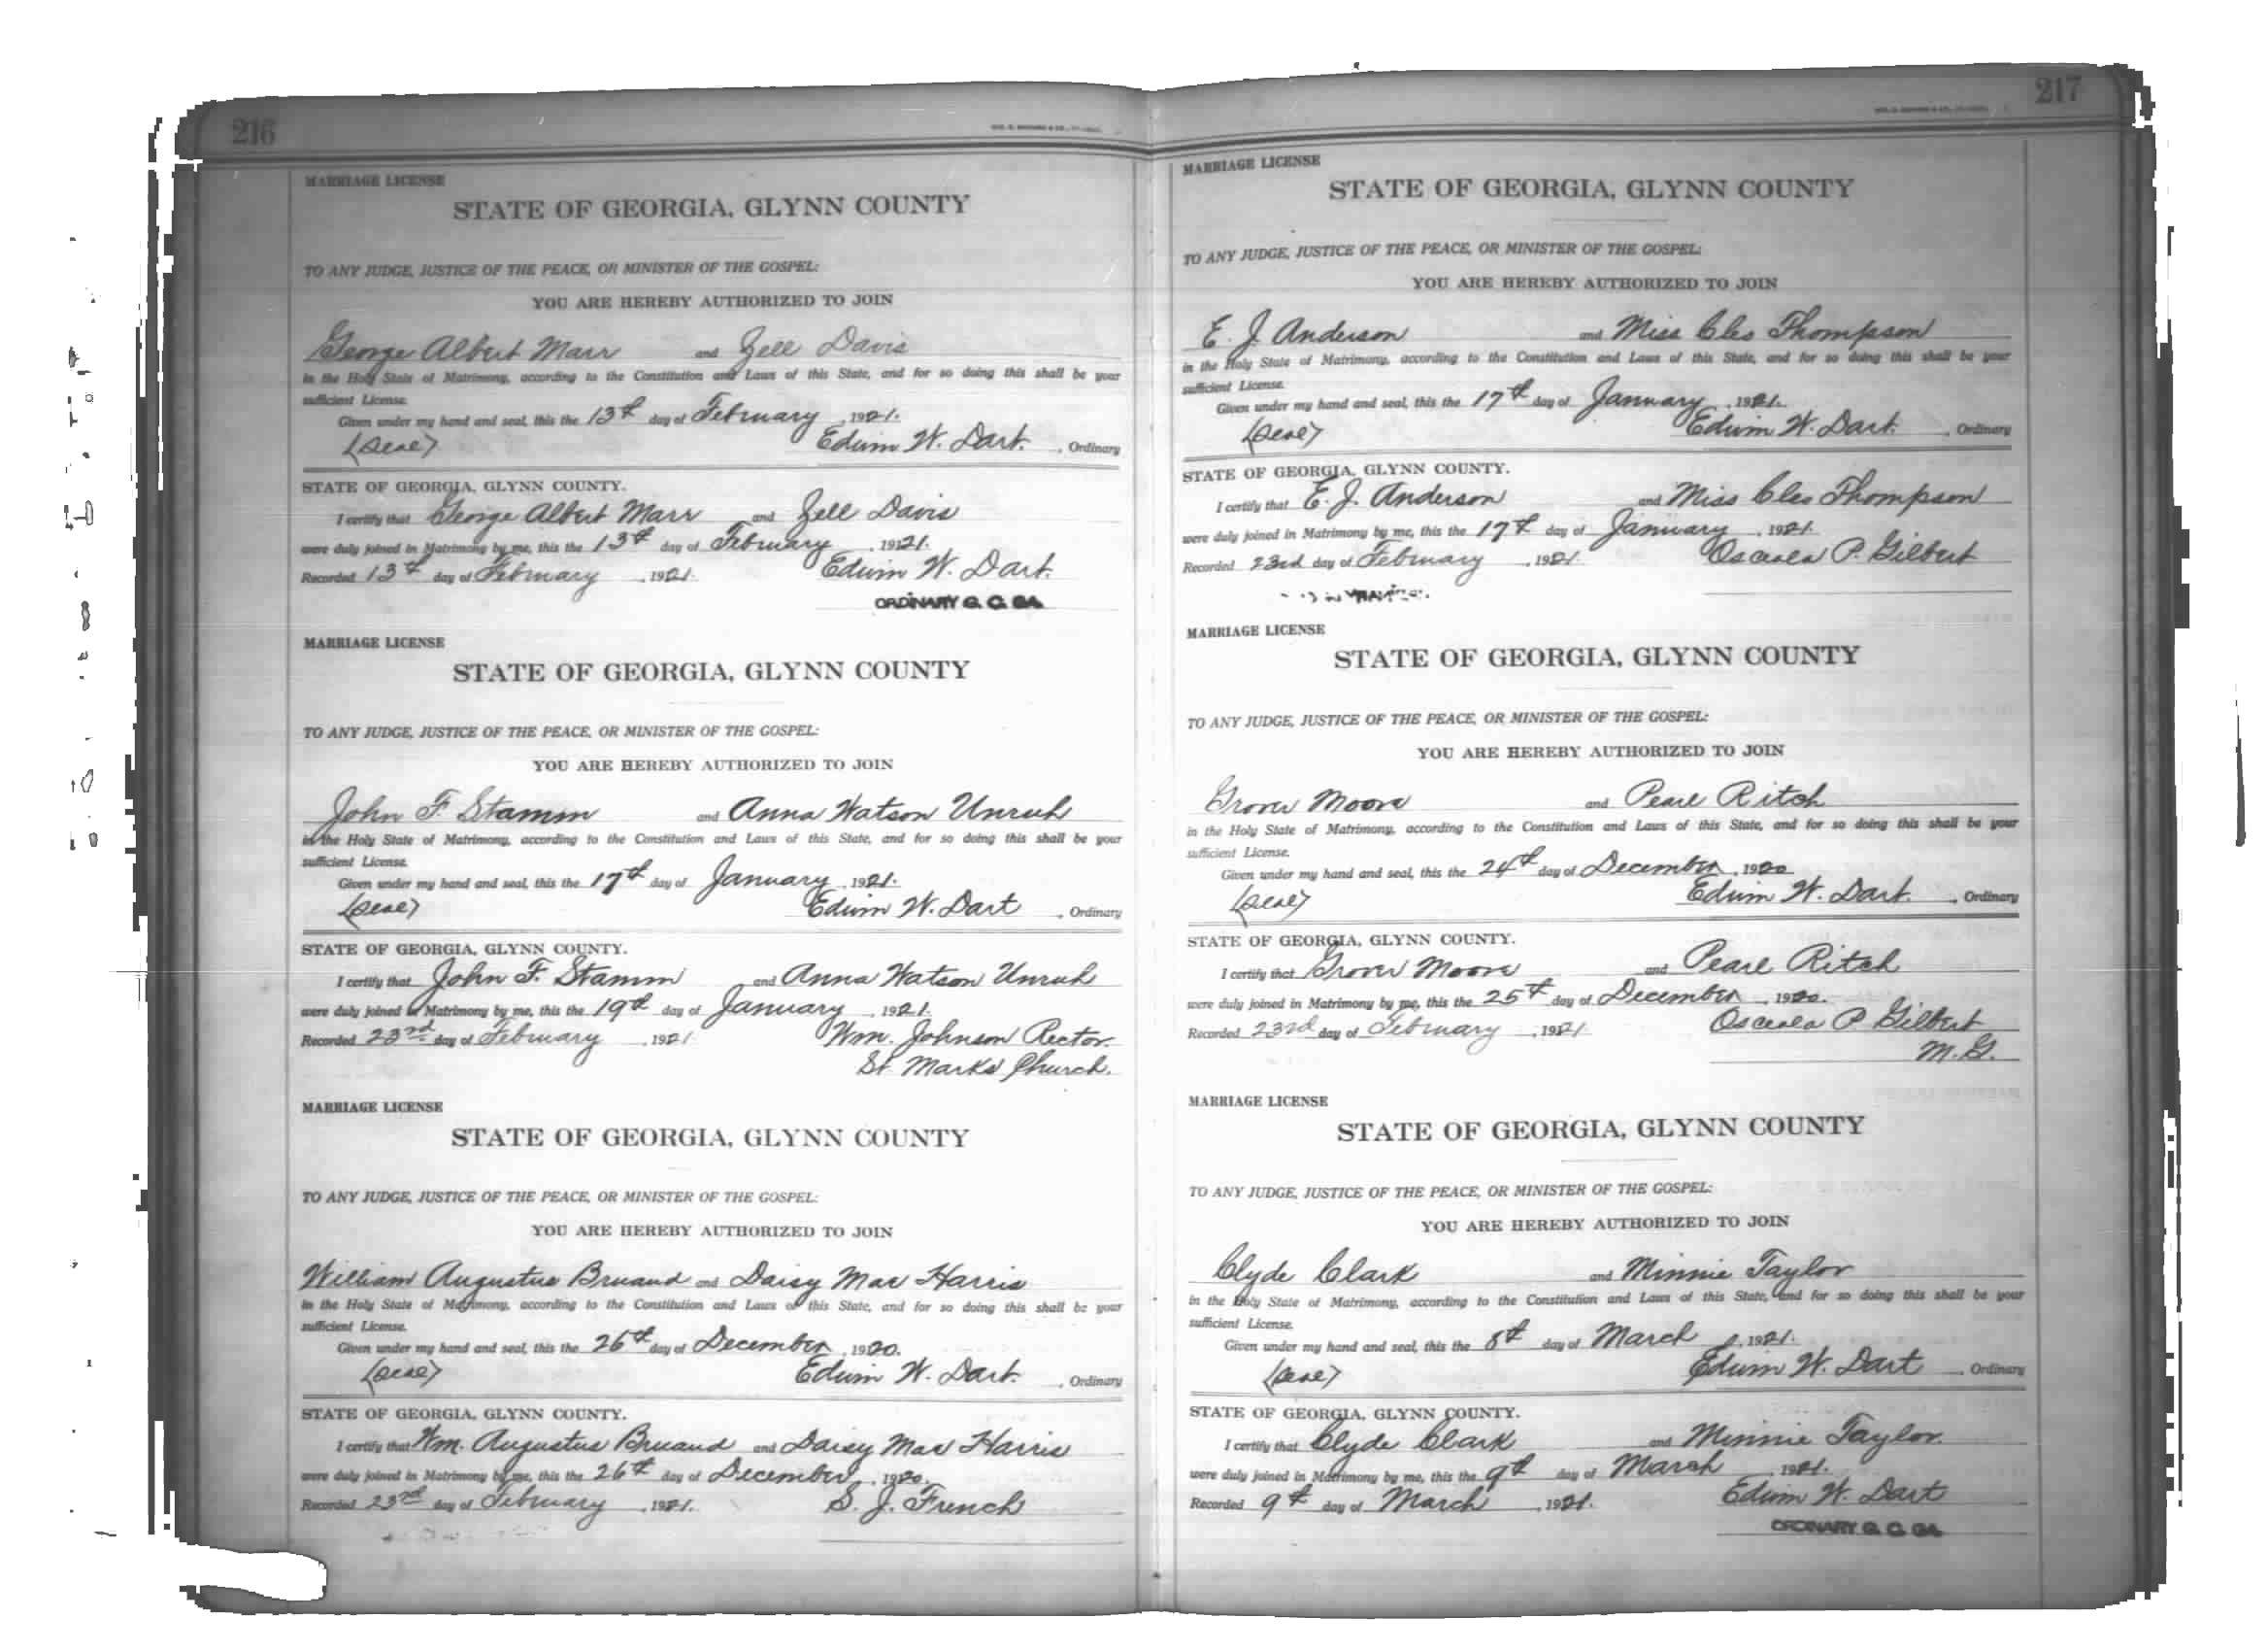 216
MARRIAGE LICENSE
STATE OF GEORGIA, GLYNN COUNTY
TO ANY JUDGE, JUSTICE OF THE PEACE, OR MINISTER OF THE GOSPEL:
YOU ARE HEREBY AUTHORIZED TO JOIN
George Albert Marr and Zell Davis
in the Holy State of Matrimony, according to the Constitution and Laws of this State, and for so doing this shall be your
sufficient License.
Given under my hand and seal, this the 13th day of February, 1921.
(Seal) Edwin W. Dart. , Ordinary
STATE OF GEORGIA, GLYNN COUNTY.
I certify that George Albert Marr and Zell Davis
were duly joined in Matrimony by me, this the 13th day of February, 1921.
Recorded 13th day of February, 1921. Edwin W. Dart.
ORDINARY G. C. GA.
MARRIAGE LICENSE
STATE OF GEORGIA, GLYNN COUNTY
TO ANY JUDGE, JUSTICE OF THE PEACE, OR MINISTER OF THE GOSPEL:
YOU ARE HEREBY AUTHORIZED TO JOIN
John F. Stamm and Anna Watson Unruh
in the Holy State of Matrimony, according to the Constitution and Laws of this State, and for so doing this shall be your
sufficient License.
Given under my hand and seal, this the 17th day of January, 1921.
(Seal) Edwin W. Dart , Ordinary
STATE OF GEORGIA, GLYNN COUNTY.
I certify that John F. Stamm and Anna Watson Unruh
were duly joined in Matrimony by me, this the 19th day of January, 1921.
Recorded 23rd day of February, 1921 Wm. Johnson Rector.
St. Marks Church.
MARRIAGE LICENSE
STATE OF GEORGIA, GLYNN COUNTY
TO ANY JUDGE, JUSTICE OF THE PEACE, OR MINISTER OF THE GOSPEL:
YOU ARE HEREBY AUTHORIZED TO JOIN
William Augustus Bruand and Daisy Mae Harris
in the Holy State of Matrimony, according to the Constitution and Laws of this State, and for so doing this shall be your
sufficient License.
Given under my hand and seal, this the 26th day of December, 1920.
(Seal) Edwin W. Dart. , Ordinary
STATE OF GEORGIA, GLYNN COUNTY.
I certify that Wm. Augustus Bruand and Daisy Mae Harris
were duly joined in Matrimony by me, this the 26th day of December, 1920.
Recorded 23rd day of February, 1921. S. J. French
217
MARRIAGE LICENSE
STATE OF GEORGIA, GLYNN COUNTY
TO ANY JUDGE, JUSTICE OF THE PEACE, OR MINISTER OF THE GOSPEL:
YOU ARE HEREBY AUTHORIZED TO JOIN
E. J. Anderson and Miss Cleo Thompson
in the Holy State of Matrimony, according to the Constitution and Laws of this State, and for so doing this shall be your
sufficient License.
Given under my hand and seal, this the 17th day of January, 1921.
(Seal) Edwin W. Dart. , Ordinary
STATE OF GEORGIA, GLYNN COUNTY.
I certify that E. J. Anderson and Miss Cleo Thompson
were duly joined in Matrimony by me, this the 17th day of January, 1921.
Recorded 23rd day of February, 1921. Osceola P. Gilbert
MARRIAGE LICENSE
STATE OF GEORGIA, GLYNN COUNTY
TO ANY JUDGE, JUSTICE OF THE PEACE, OR MINISTER OF THE GOSPEL:
YOU ARE HEREBY AUTHORIZED TO JOIN
Grover Moore and Pearl Ritch
in the Holy State of Matrimony, according to the Constitution and Laws of this State, and for so doing this shall be your
sufficient License.
Given under my hand and seal, this the 24th day of December, 1920
(Seal) Edwin W. Dart. , Ordinary
STATE OF GEORGIA, GLYNN COUNTY.
I certify that Grover Moore and Pearl Ritch
were duly joined in Matrimony by me, this the 25th day of December, 1920.
Recorded 23rd day of February, 1921 Osceola P. Gilbert
M. G.
MARRIAGE LICENSE
STATE OF GEORGIA, GLYNN COUNTY
TO ANY JUDGE, JUSTICE OF THE PEACE, OR MINISTER OF THE GOSPEL:
YOU ARE HEREBY AUTHORIZED TO JOIN
Clyde Clark and Minnie Taylor
in the Holy State of Matrimony, according to the Constitution and Laws of this State, and for so doing this shall be your
sufficient License.
Given under my hand and seal, this the 8th day of March, 1921.
(Seal) Edwin W. Dart , Ordinary
STATE OF GEORGIA, GLYNN COUNTY.
I certify that Clyde Clark and Minnie Taylor.
were duly joined in Matrimony by me, this the 9th day of March, 1921.
Recorded 9th day of March, 1921. Edwin W. Dart
ORDINARY G. C. GA.